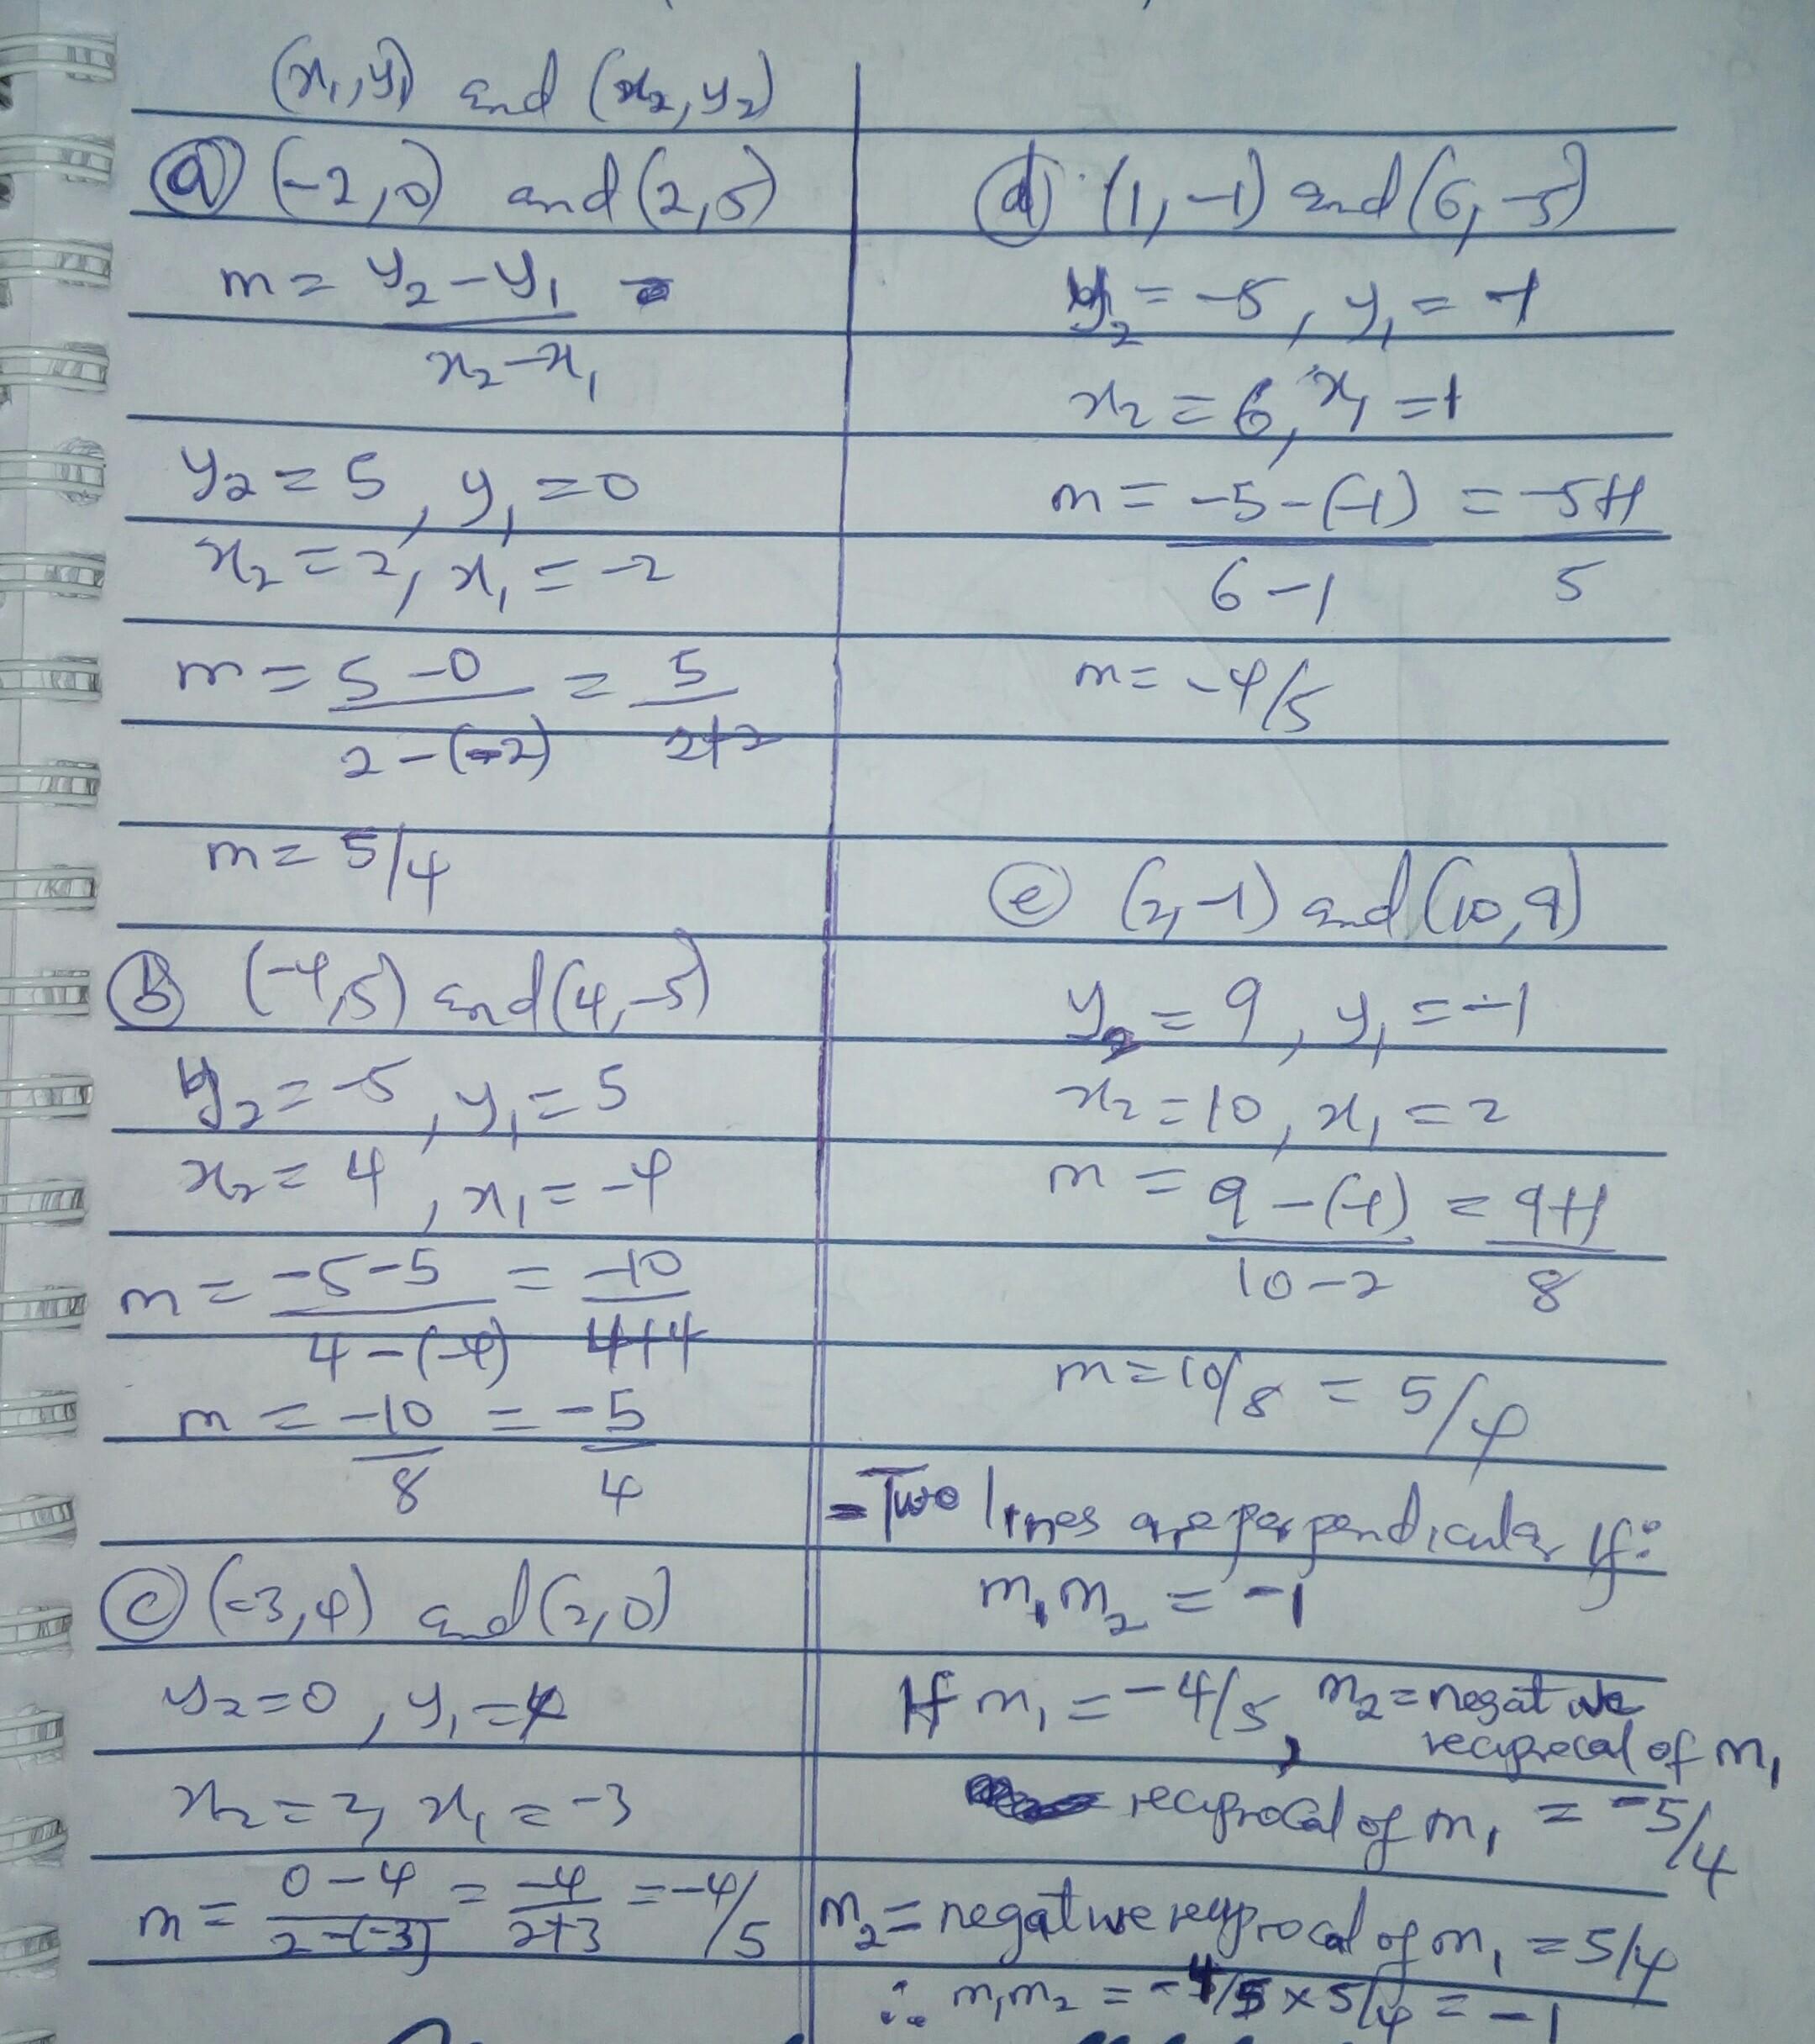 (x₁,y₁) and (x₂,y₂)
(a) (-2,0) and (2,5)
m = y₂-y₁
x₂-x₁
y₂ = 5, y₁ = 0
x₂ = 2, x₁ = -2
m = 5-0 = 5
2-(-2) 2+2
m = 5/4
(b) (-4,5) and (4,-5)
y₂ = -5, y₁ = 5
x₂ = 4, x₁ = -4
m = -5-5 = -10
4-(-4) 4+4
m = -10 = -5
8 4
(c) (-3,4) and (2,0)
y₂=0, y₁=4
x₂=2, x₁=-3
m = 0-4 = -4 = -4/5
2-(-3) 2+3
(d) (1,-1) and (6,-5)
y₂ = -5, y₁ = -1
x₂ = 6, x₁ = 1
m = -5-(-1) = -5+1
6-1 5
m = -4/5
(e) (2,-1) and (10,9)
y₂ = 9, y₁ = -1
x₂ = 10, x₁ = 2
m = 9-(-1) = 9+1
10-2 8
m = 10/8 = 5/4
- Two lines are perpendicular if:
m₁m₂ = -1
If m₁ = -4/5, m₂ = negative
reciprocal of m₁
reciprocal of m₁ = -5/4
m₂ = negative reciprocal of m₁ = 5/4
∴ m₁m₂ = -4/5 × 5/4 = -1